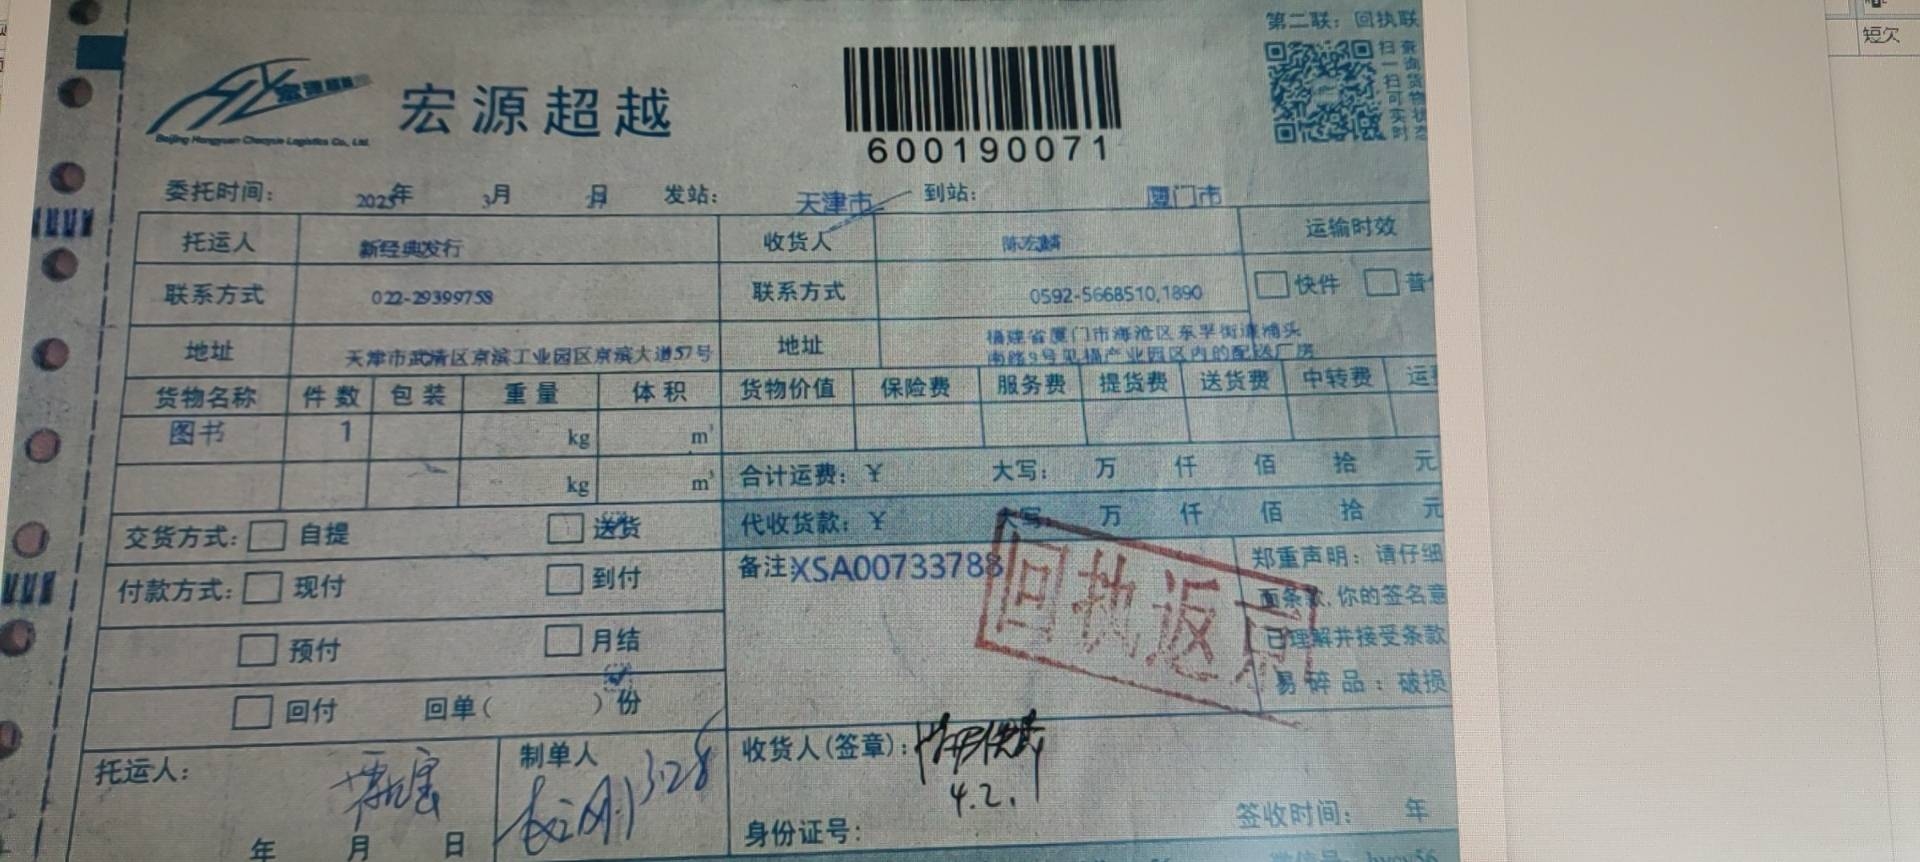 第二联：回执联
短欠
宏源超越
Beijing Hongyuan Chaoyue Logistics Co., Ltd.
600190071
扫一扫可实时
查询货物状态
委托时间： 2025年 3月 日 发站： 天津市 到站： 厦门市
托运人 新经典发行 收货人 运输时效
联系方式 022-29399758 联系方式 0592-5668510,1890 快件
地址 天津市武清区京滨工业园区京滨大道57号 地址 福建省厦门市海沧区东孚街道浦头
南路9号见福产业园区内的配送厂房
货物名称 件数 包装 重量 体积 货物价值 保险费 服务费 提货费 送货费 中转费
图书 1 kg m³
kg m³ 合计运费：￥ 大写： 万 仟 佰 拾 元
交货方式： 自提 送货 代收货款：￥ 大写： 万 仟 佰 拾 元
付款方式： 现付 到付 备注 XSA00733788
预付 月结
回付 回单（ ）份
郑重声明：请仔细
面条款,你的签名意
已理解并接受条款
易碎品：破损
回执返
托运人：
年 月 日
制单人
3.28
收货人(签章)：
4.2.
身份证号：
签收时间： 年